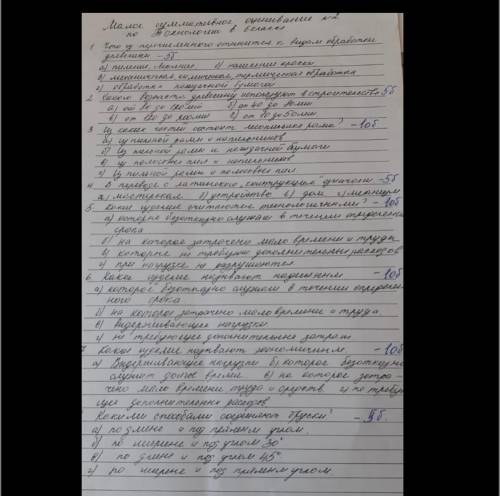 Малое суммативное оценивание №2
по технологии в 6 классе
1. Что из перечисленного относится к видам обработки
древесины - 5б
а) пиление, б) нанесение краски
в) механическая, химическая, термическая обработка
г) обработка наждачной бумаги
2. Какого возраста древесину используют в строительстве 5б
а) от 80 до б) от 40 до 80 лет
в) от 120 до г) от до 50 лет
3. Из каких частей состоит лесопильная рама? - 10б
а) из пильной рамы и напильников
б) Из пильной рамы и наждачной бумаги
в) из полосовых пил и напильников
г) Из пильной рамы и полосовых пил
4. В переводе с латинского "конструкция" означает - 5б
а) мастерская б) устройство в) дом г) механизм
5. Какие изделия считаются технологичными? - 10б
а) которые безотказно служат в течении определенного
срока
б) на которое затрачено мало времени и труда
в) которые не требуют дополнительных расходов
г) при нагрузке не разрушаются
6. Какое изделие называют надежным - 10б
а) которое безотказно служит в течении определен-
ного срока
б) на которое затрачено мало времени и труда
в) Выдерживающее нагрузки
г) не требующее дополнительных затрат
7 Какое изделие называют экономичным - 10б
а) Выдерживающее нагрузки б) которое безотказно
служит долгое время в) на которое затра-
чено мало времени труда и средств г) не требую-
щее дополнительных расходов
Какими способами соединяют бруски? - 5б
а) по длине и под прямым углом
б) по ширине и под углом 30°
в) по длине и под углом 45°
г) по ширине и под прямым углом